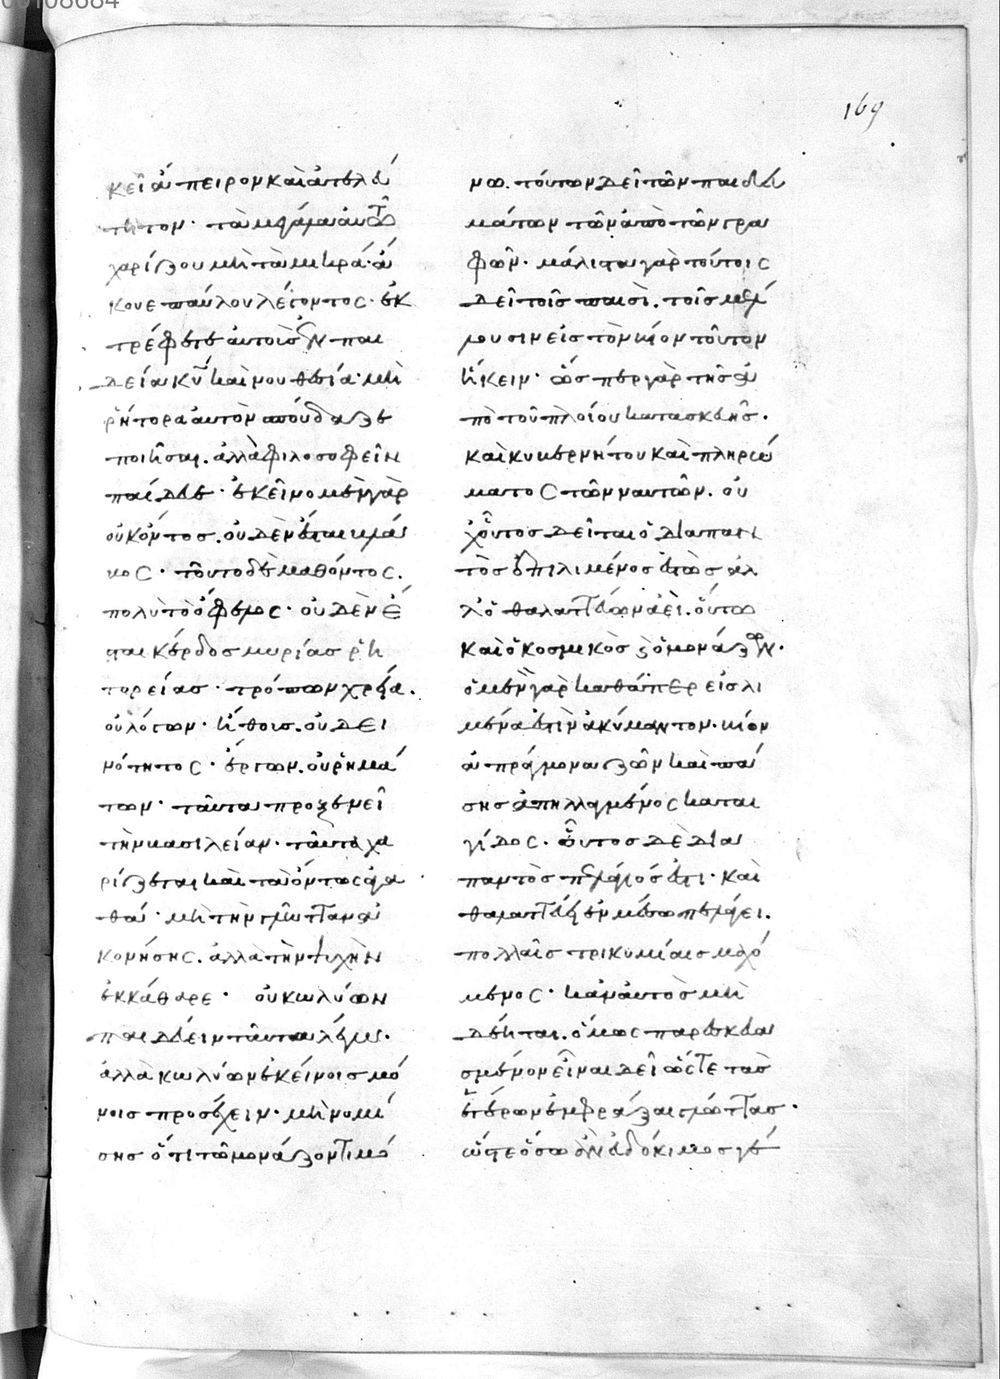 169
κεῖ ἀπειρον καὶ ἀτελεύ
τητον· τὰ μεγάλα αὐτῶ
χαρίζου μὴ τὰ μικρά· ἄ
κουε παύλου λέγοντος· ἐκ
τρέφετε αὐτοῖς ἐν παι
δεία κυ καὶ νουθεσία· μὴ
ῥήτορα αὐτὸν σπούδαζε
ποιῆσαι. ἀλλὰ φιλοσοφεῖν
παίδευε· ἐκεῖνο μὲν γὰρ
οὐκ ὄντος. οὐδὲν ἔσται βλά
βος· τοῦτο δὲ μαθόντος.
πολὺ τὸ ὄφελος· οὐδὲν ἔ
σται κέρδος μυρίας ῥη
τορείας· τρόπων χρεία.
οὐ λόγων· ἤθους. οὐ δει
νότητος· ἔργων. οὐ ῥημά
των· ταῦτα προξενεῖ
τὴν βασιλείαν· ταῦτα χα
ρίζεται καὶ τὰ ὄντως ἀγα
θά· μὴ τὴν γλῶτταν ἀ
κονήσης. ἀλλὰ τὴν ψυχὴν
ἐκκάθαρε· οὐ κωλύων
παιδεύειν ταῦτα λέγω.
ἀλλὰ κωλύων ἐκείνοις μό
νοις προσέχειν· μὴ νομί
σης ὅτι τῶ μονάζοντι μό
νω. τούτων δεῖ τῶν παιδευ
μάτων τῶν ἀπὸ τῶν γρα
φῶν· μάλιστα γὰρ τούτοις
δεῖ τοῖς παισὶ. τοῖς μέλ
λουσιν εἰς τὸν βίον τοῦτον
ἥκειν· ὥσπερ γὰρ τῆς ἀ
πὸ τοῦ πλοίου κατασκευῆς.
καὶ κυβερνήτου καὶ πληρώ
ματος τῶν ναυτῶν. οὐ
χ οὗτος δεῖται ὁ διαπαν
τὸς ἐλλιμένος ἐστὼς ἀλ
λ' ὁ θαλαττεύων ἀεὶ. οὕτω
καὶ ὁ κοσμικὸς καὶ ὁ μονάζων.
ὁ μὲν γὰρ καθάπερ εἰς λι
μένα ἐστὶν ἀκύμαντον. βίον
ἀπράγμονα ζῶν καὶ πά
σης ἀπηλλαγμένος καται
γίδος. οὗτος δὲ δια
παντὸς πελάγιός ἐστι· καὶ
θαλαττεύει ἐν μέσω πελάγει.
πολλαῖς τρικυμίαις μαχό
μενος· κἂν αὐτὸς μὴ
δέηται. ὅμως παρεσκευα
σμένον εἶναι δεῖ ὥστε τὰς
ἑτέρων ἐμφράξαι γλώττας·
ὥστε ὅσω ἂν εὐδόκιμος γέ